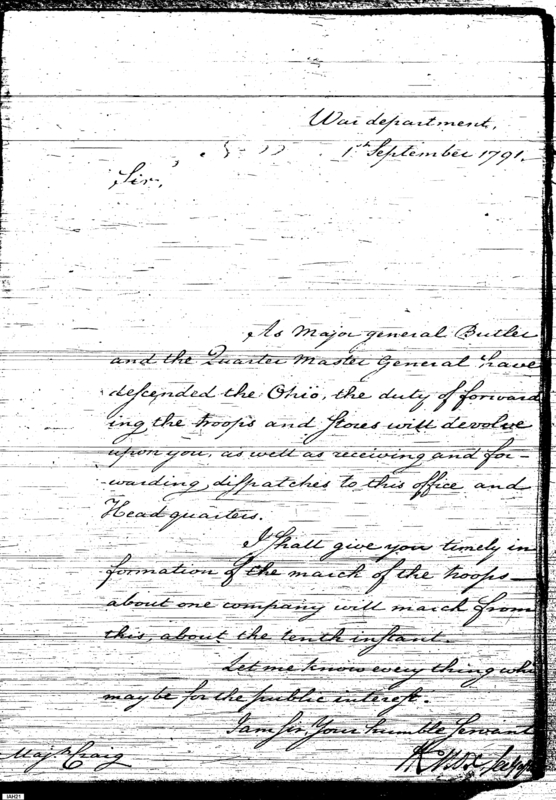 War department,
1st September 1791.
Sir,
As Major general Butler
and the Quarter Master General have
descended the Ohio, the duty of forward
ing the troops and stores will devolve
upon you, as well as receiving and for-
-warding dispatches to this office and
Head quarters.
I shall give you timely in
formation of the march of the troops—
about one company will march from
this, about the tenth instant.
Let me know every thing whi
may be for the public interest.
I am Sir, Your humble Servant
HKnox
Majr Craig
IAH21